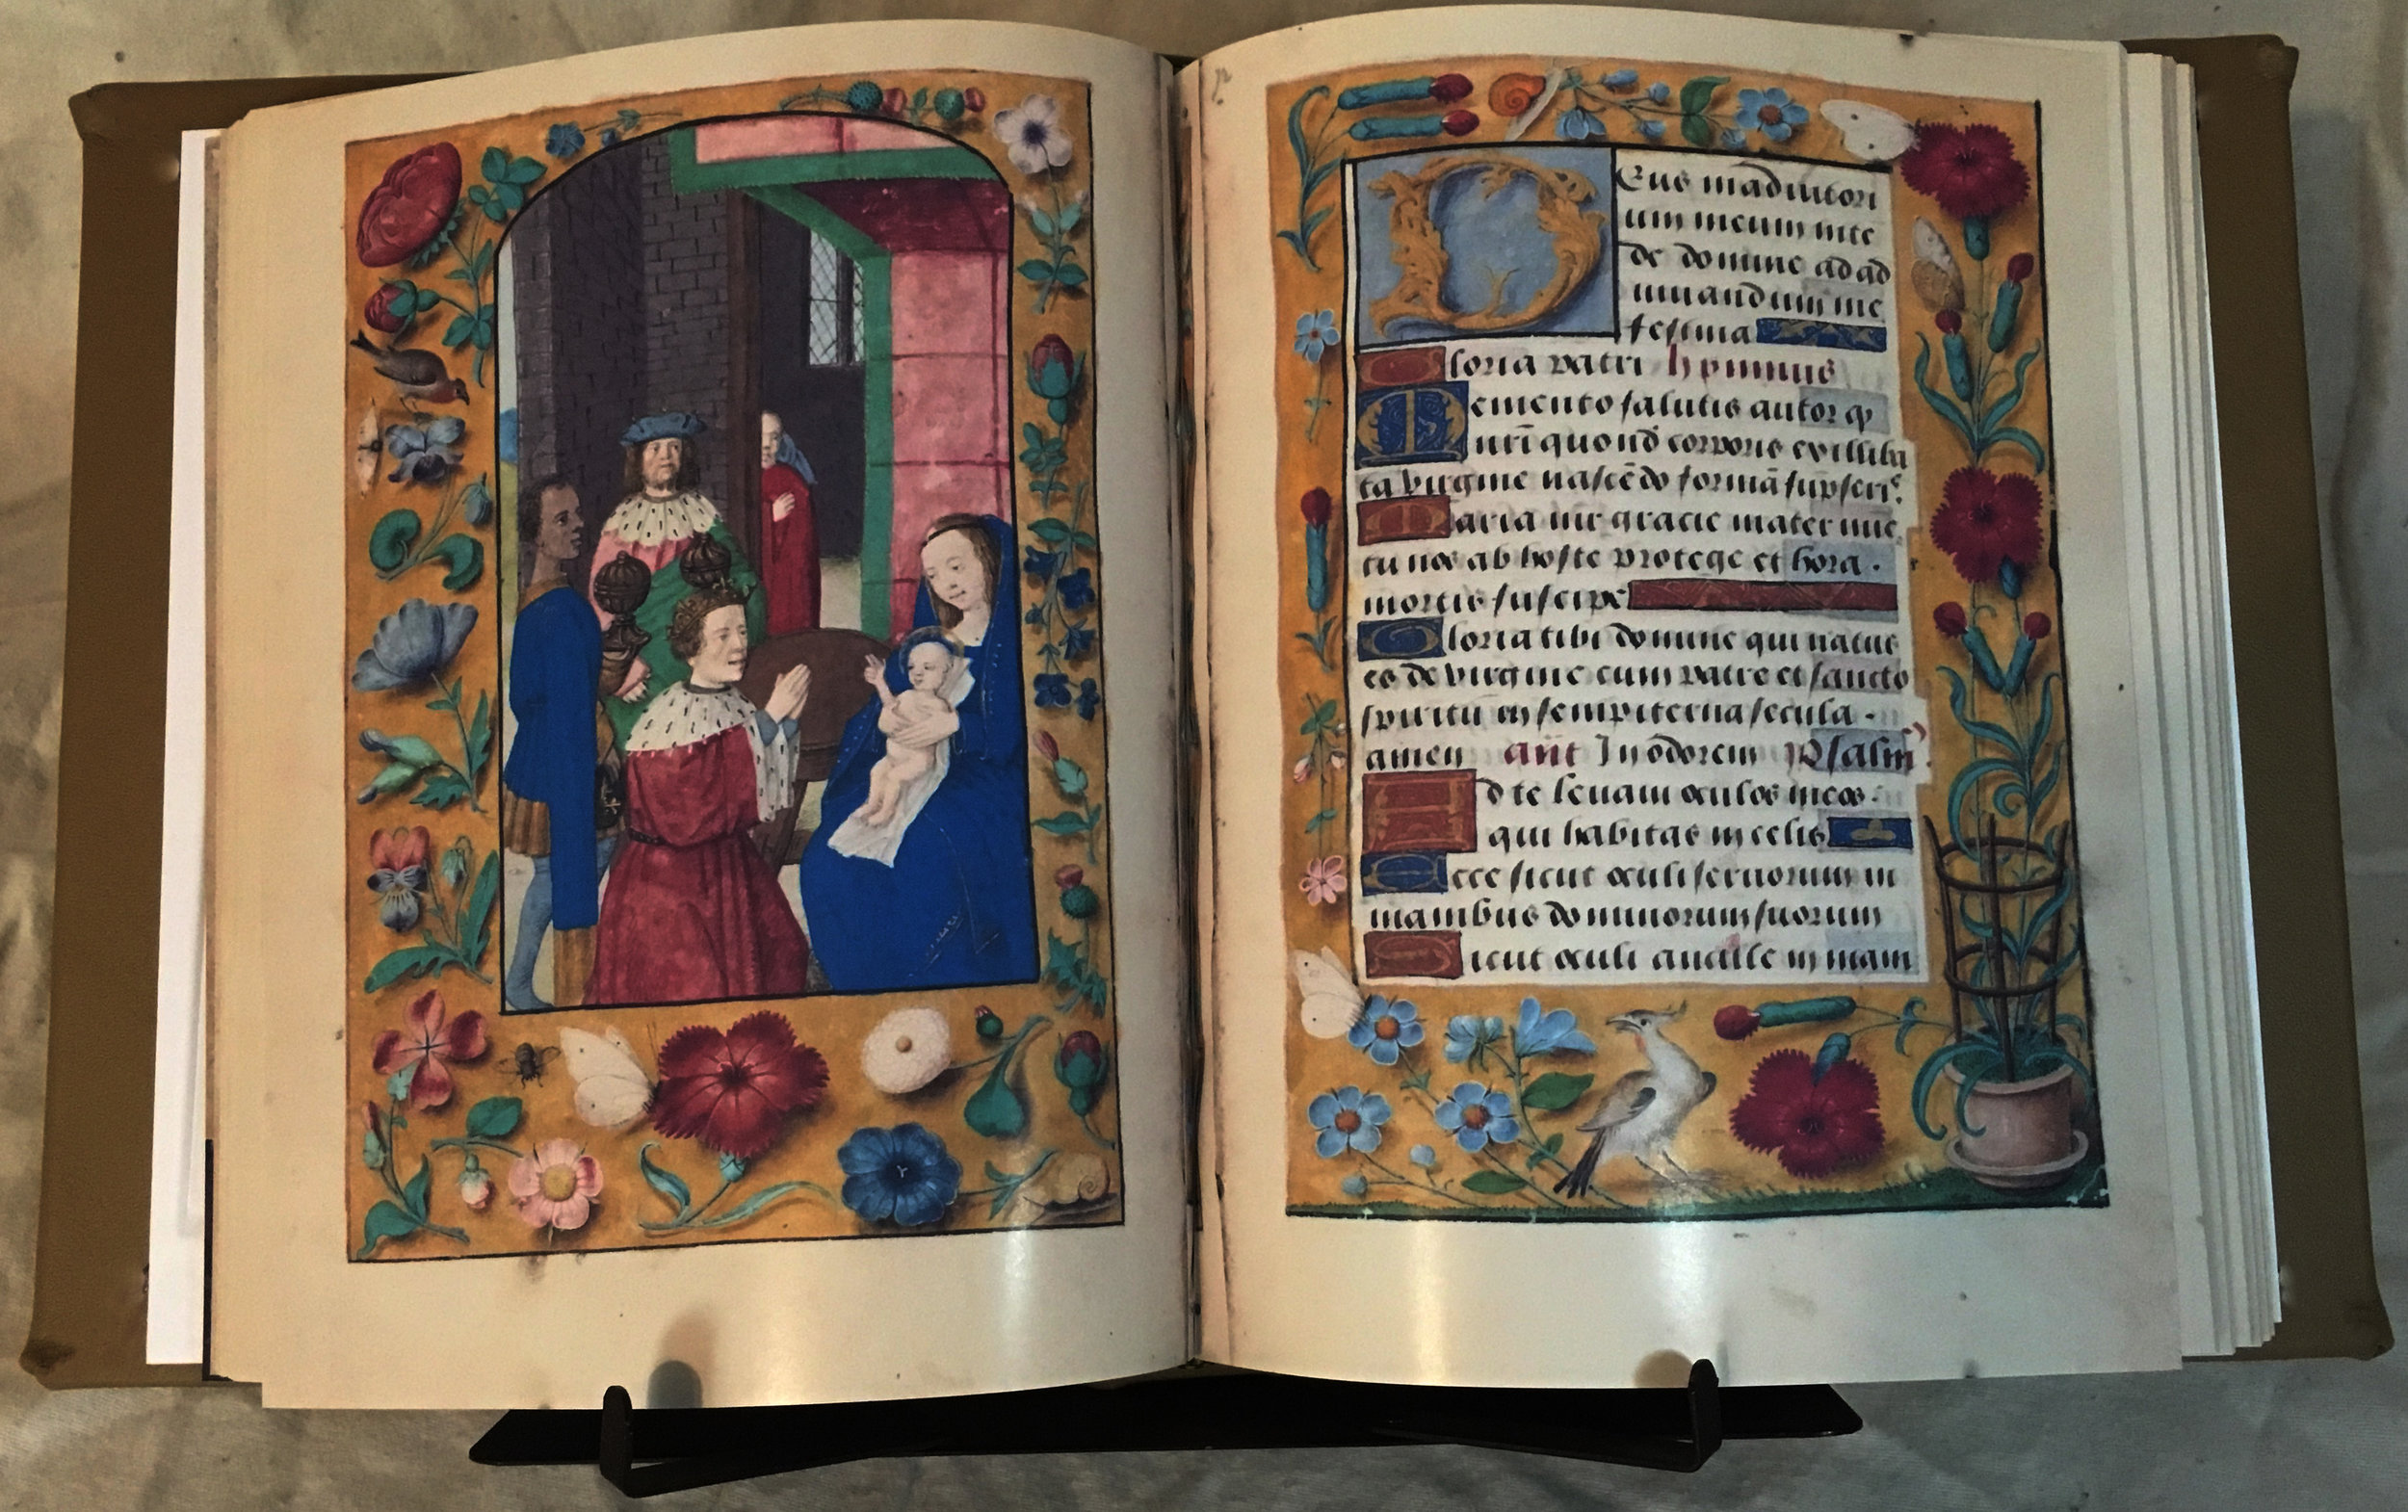 Deus in adiutori
um meum inte
de domine ad ad
iuuandum me
festina
Gloria patri hymnus
Memento salutis autor q
nr̄i quond̄ corporis ex illiba
ta virgine nascēdo formā sūpseris
Maria mr̄ gracie mater mie
tu nos ab hoste protege et hora .
mortis suscipe
Gloria tibi domine qui natus
es de virgine cum patre et sancto
spiritu in sempiterna secula .
amen ant In odorem Psalm
Ad te leuaui oculos meos .
qui habitas in celis
Ecce sicut oculi seruorum in
manibus dominorum suorum
Sicut oculi ancille in mani